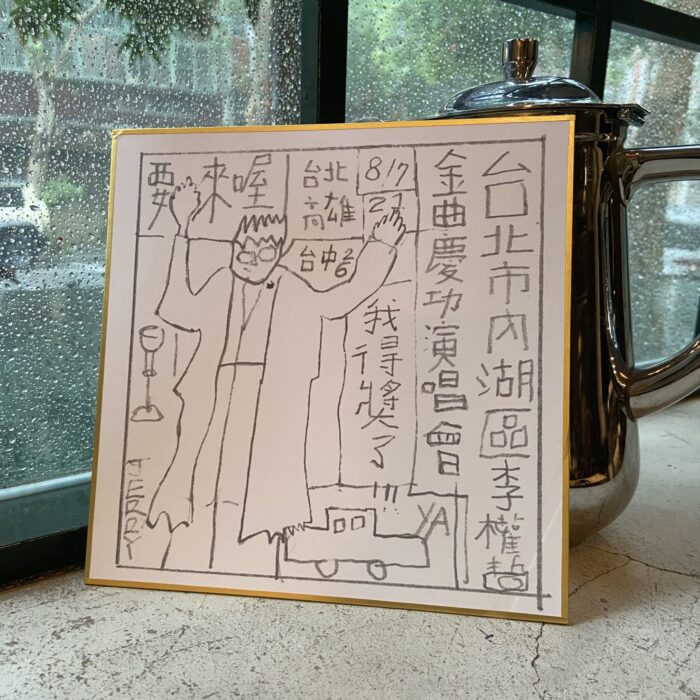 台北市內湖區李權哲
金曲慶功演唱會
台北 8/7
高雄
台中 26
我得獎了!!!
要來喔
YA
JERRY